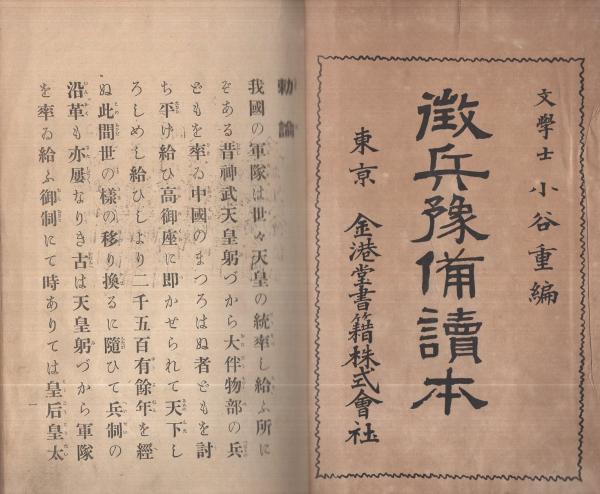 文學士 小谷重編
徵兵豫備讀本
東京 金港堂書籍株式會社
勅諭
我國の軍隊は世々天皇の統率し給ふ所に
ぞある昔神武天皇躬づから大伴物部の兵
どもを率ゐ中國のまつろはぬ者どもを討
ち平げ給ひ高御座に即かせられて天下し
ろしめし給ひしより二千五百有餘年を經
ぬ此間世の樣の移り換るに隨ひて兵制の
沿革も亦屢なりき古は天皇躬づから軍隊
を率ゐ給ふ御制にて時ありては皇后皇太
一